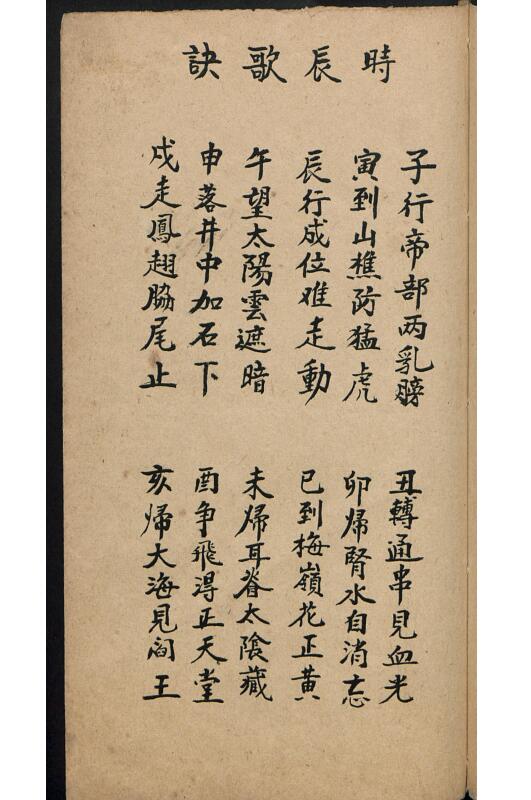 時辰歌訣
子行帝部两乳膀
丑轉通串見血光
寅到山樵防猛虎
卯歸腎水自消忘
辰行成位难走動
巳到梅嶺花正黄
午望太陽雲遮暗
未歸耳脊太陰藏
申落井中加石下
酉争飛淂正天堂
戌走鳳翅脇尾止
亥歸大海見阎王